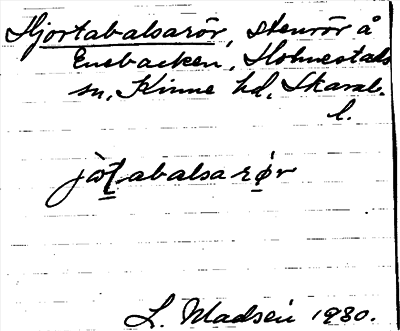 Hjortabalsarör, stenrör å
Enebacken, Holmestads
sn, Kinne hd, Skarab.
l.
jòṯabalsarø̱r
L. Madsén 1930.